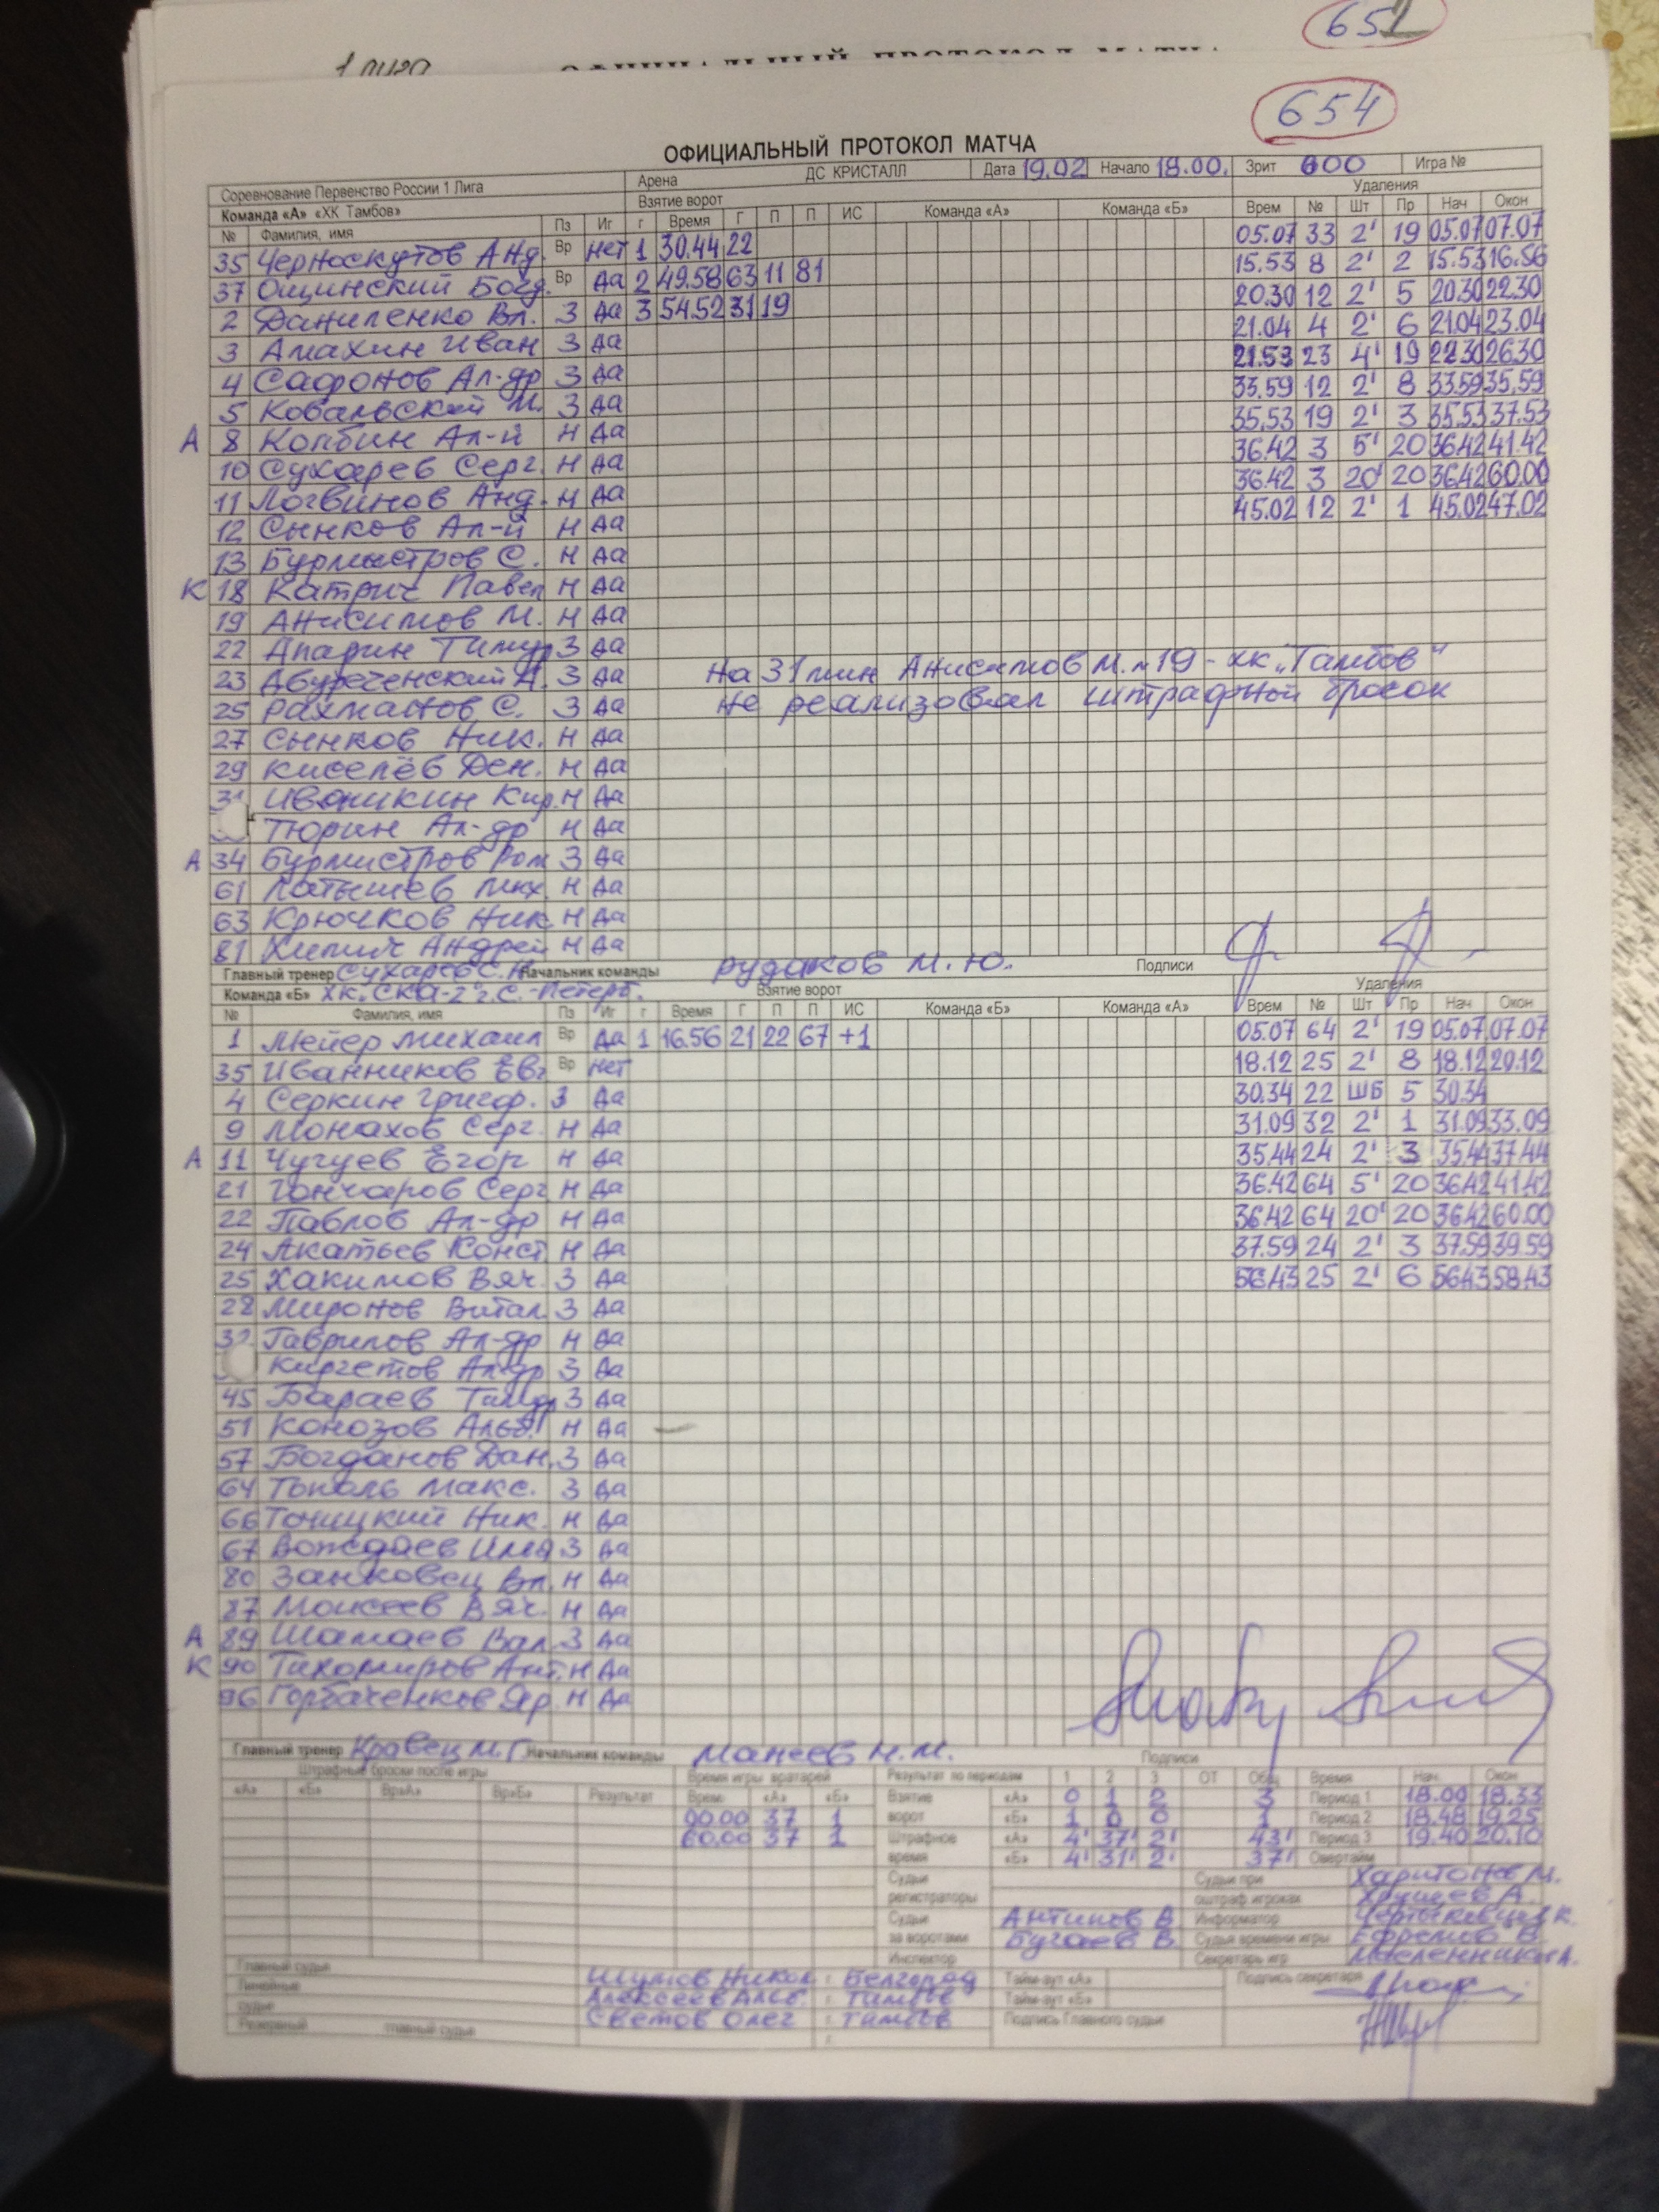 651
654
ОФИЦИАЛЬНЫЙ ПРОТОКОЛ МАТЧА
Соревнование Первенство России 1 Лига Арена ДС КРИСТАЛЛ Дата 19.02 Начало 18.00. Зрит 600 Игра №
Команда «А» «ХК Тамбов» Взятие ворот Удаления
№ Фамилия, имя Пз Иг г Время Г П П ИС Команда «А» Команда «Б» Врем № Шт Пр Нач Окон
35 Черноскутов Анд. Вр Нет 1 30.44 22 05.07 33 2' 19 05.07 07.07
37 Ощинский Богд. Вр Да 2 49.58 63 11 81 15.53 8 2' 2 15.53 16.56
2 Даниленко Вл. З Да 3 54.52 31 19 20.30 12 2' 5 20.30 22.30
3 Амахин Иван З Да 21.04 4 2' 6 21.04 23.04
4 Сафонов Ал-др З Да 21.53 23 4' 19 22.30 26.30
5 Ковальский М. З Да 33.59 12 2' 8 33.59 35.59
А 8 Колбин Ал-й Н Да 35.53 19 2' 3 35.53 37.53
10 Сухарев Серг. Н Да 36.42 3 5' 20 36.42 41.42
11 Логвинов Анд. Н Да 36.42 3 20' 20 36.42 60.00
12 Сынков Ал-й Н Да 45.02 12 2' 1 45.02 47.02
13 Бурмистров С. Н Да
К 18 Катрич Павел Н Да
19 Анисимов М. Н Да
22 Апарин Тимур З Да
23 Абуреченский А. З Да На 31 мин Анисимов М. №19 - ХК "Тамбов"
25 Рахманов С. З Да не реализовал штрафной бросок
27 Сынков Ник. Н Да
29 Киселёв Ден. Н Да
31 Иванникин Кир. Н Да
Тюрин Ал-др Н Да
А 34 Бурмистров Ром З Да
61 Латышев Мих. Н Да
63 Крючков Ник Н Да
81 Хипич Андрей Н Да
Главный тренер Сухарев С.Н. Начальник команды Рудаков М.Ю. Подписи
Команда «Б» ХК "СКА-2" г.С.-Петерб. Взятие ворот Удаления
№ Фамилия, имя Пз Иг г Время Г П П ИС Команда «Б» Команда «А» Врем № Шт Пр Нач Окон
1 Мейер Михаил Вр Да 1 16.56 21 22 67 +1 05.07 64 2' 19 05.07 07.07
35 Иванников Евг Вр Нет 18.12 25 2' 8 18.12 20.12
4 Серкин Григор. З Да 30.34 22 ШБ 5 30.34
9 Монахов Серг. Н Да 31.09 32 2' 1 31.09 33.09
А 11 Чугуев Егор Н Да 35.44 24 2' 3 35.44 37.44
21 Гончаров Серг Н Да 36.42 64 5' 20 36.42 41.42
22 Павлов Ал-др Н Да 36.42 64 20' 20 36.42 60.00
24 Акатьев Конст Н Да 37.59 24 2' 3 37.59 39.59
25 Хакимов Вяч. З Да 56.43 25 2' 6 56.43 58.43
28 Миронов Витал. З Да
32 Гаврилов Ал-др Н Да
Киргетов Ал-др З Да
45 Бараев Тимур З Да
51 Конозов Альб. Н Да
57 Богданов Дан. З Да
64 Тополь Макс. З Да
66 Точицкий Ник. Н Да
67 Вождаев Илья З Да
80 Занковец Вл. Н Да
87 Моисеев Вяч. Н Да
А 89 Шамаев Вал. З Да
К 90 Тихомиров Ант. Н Да
96 Горбаченков Яр. Н Да
Главный тренер Кравец М.Г. Начальник команды Манеев Н.М. Подписи
Штрафные броски после игры Время игры вратарей Результат по периодам 1 2 3 ОТ Общ Время Нач. Окон.
«А» «Б» Вр«А» Вр«Б» Результат Врем. «А» «Б» Взятие «А» 0 1 2 3 Период 1 18.00 18.33
00.00 37 1 ворот «Б» 1 0 0 1 Период 2 18.48 19.25
60.00 37 1 Штрафное «А» 4' 37' 2' 43' Период 3 19.40 20.10
время «Б» 4' 31' 2' 37' Овертайм
Судьи Судьи при Харитонов М.
регистраторы оштраф.игроках Хрущев А.
Судьи Антипов В Информатор
за воротами Бугаев В. Судья времени игры Ефремов В.
Инспектор Секретарь игр Масленников А.
Главный судья Шумов Никол г. Белгород Тайм-аут «А» Подпись секретаря
Линейные Алексеев Альб. г. Тамбов Тайм-аут «Б»
судьи Светов Олег г. Тамбов Подпись Главного судьи
Резервный главный судья г.